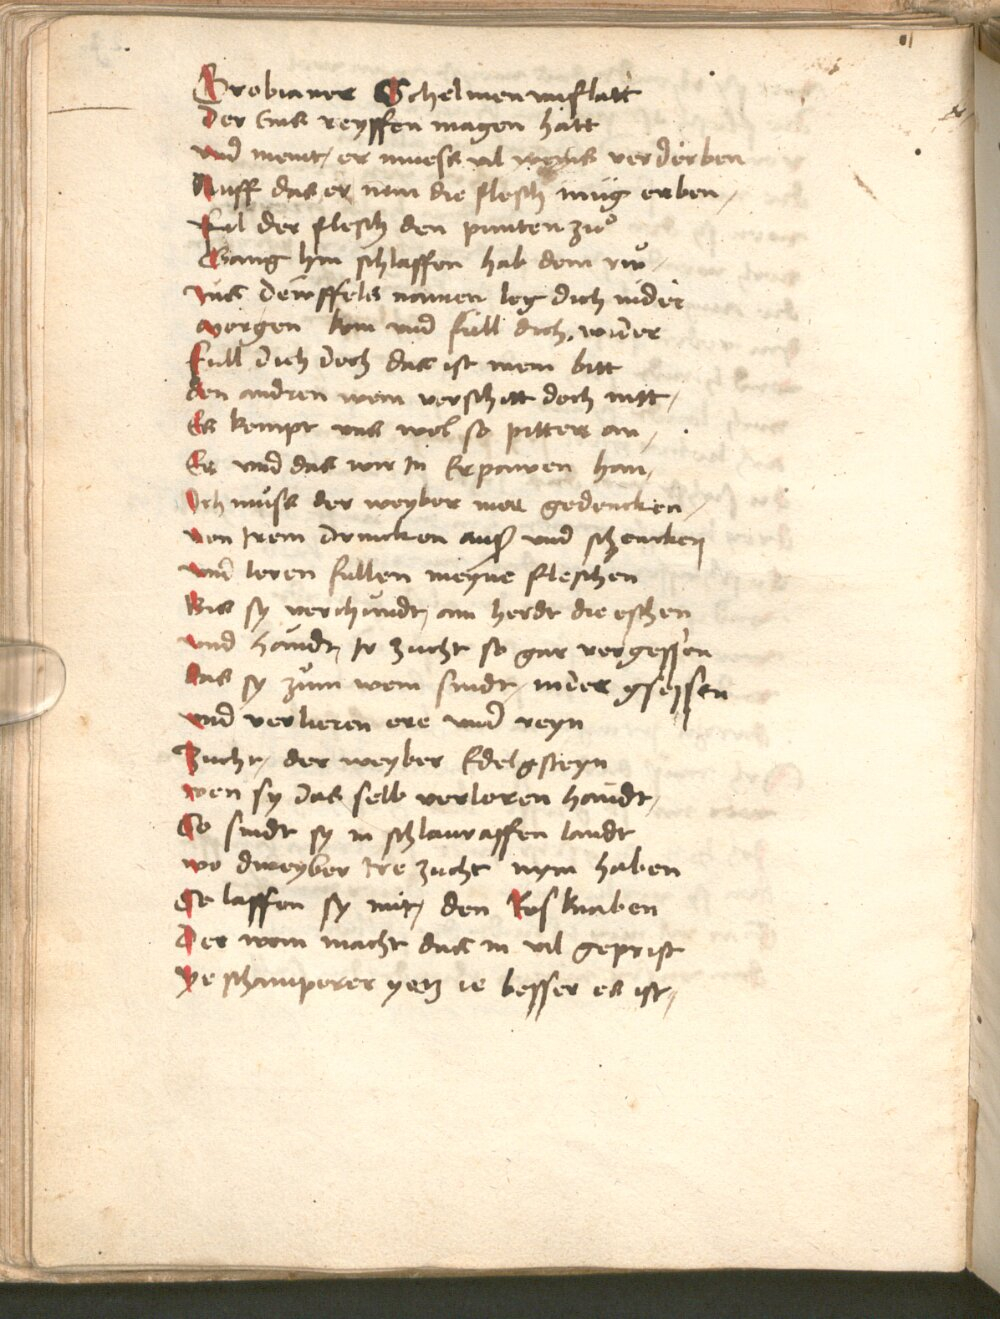 Grobianer Schelmen unflatt
Der Eins reyffen magen hatt
und meint, er muess vil weins verderben
Auff das er nun die flesch mug erben,
Ful der flesch den punten zů
Gang hin schlaffen hab dein růw,
Ins dewffels namen leg dich nider
morgen kum und full dich wider
Full dich doch das ist mein bitt
den andren wein verschitt doch nitt,
Es kempt uns wol so pitter an,
Ee und das wir In Erpawen han,
Ich můss der weyber mer gedencken,
von Irem drincken auss und schencken
und leren fullen meyne fleschen
Bis sy verchundt, am herdt die eschen
und handt, Ir zucht so gar vergessen
das sy zům wein sindt, nider gsessen
und verlieren ere und reyn
Zucht, der weyber Edelgsteyn
wen sy das selb verloren handt,
So sindt sy in schlauraffen landt
wo dweyber Ire zucht nym haben
So laffen sy mit, den Rosknaben
Der wein macht das in vil geprist
ye schamperer yetz ie besser es ist,